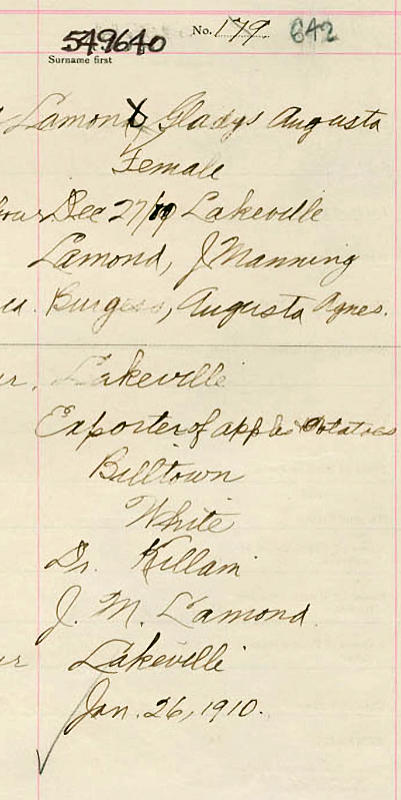 549640 No. 179 642
Surname first
Lamond, Gladys Augusta
Female
Dec 27/ Lakeville
Lamond, J Manning
Burgess, Augusta Agnes.
Lakeville
Exporter of apples & potatoes
Billtown
White
Dr. Killam
J. M. Lamond.
Lakeville
Jan. 26, 1910.